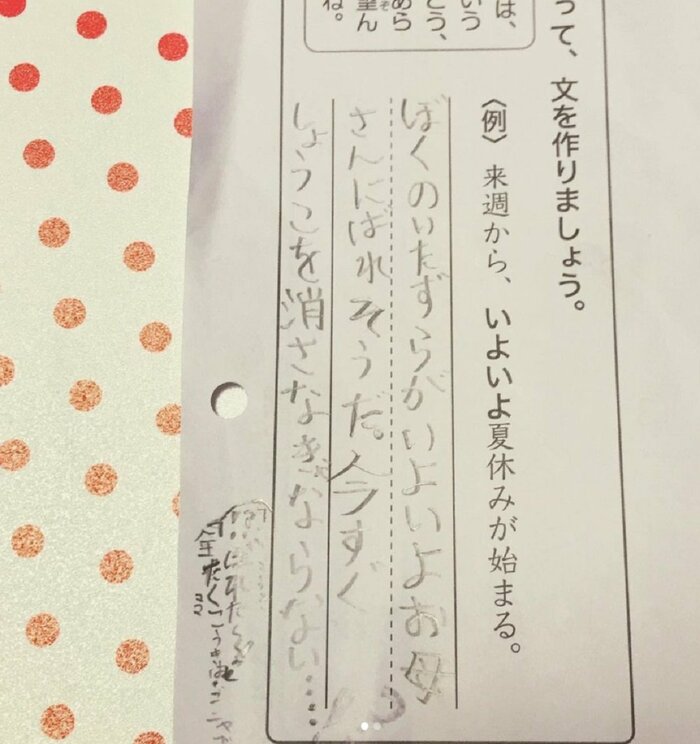 は、
いう
とう、
めら
望ん
ぞ
ね。
って、文を作りましょう。
〈例〉 来週から、いよいよ夏休みが始まる。
ぼくのいたずらがいよいよお母
さんにばれそうだ。今すぐ
しょうこを消さなぎゃならない……